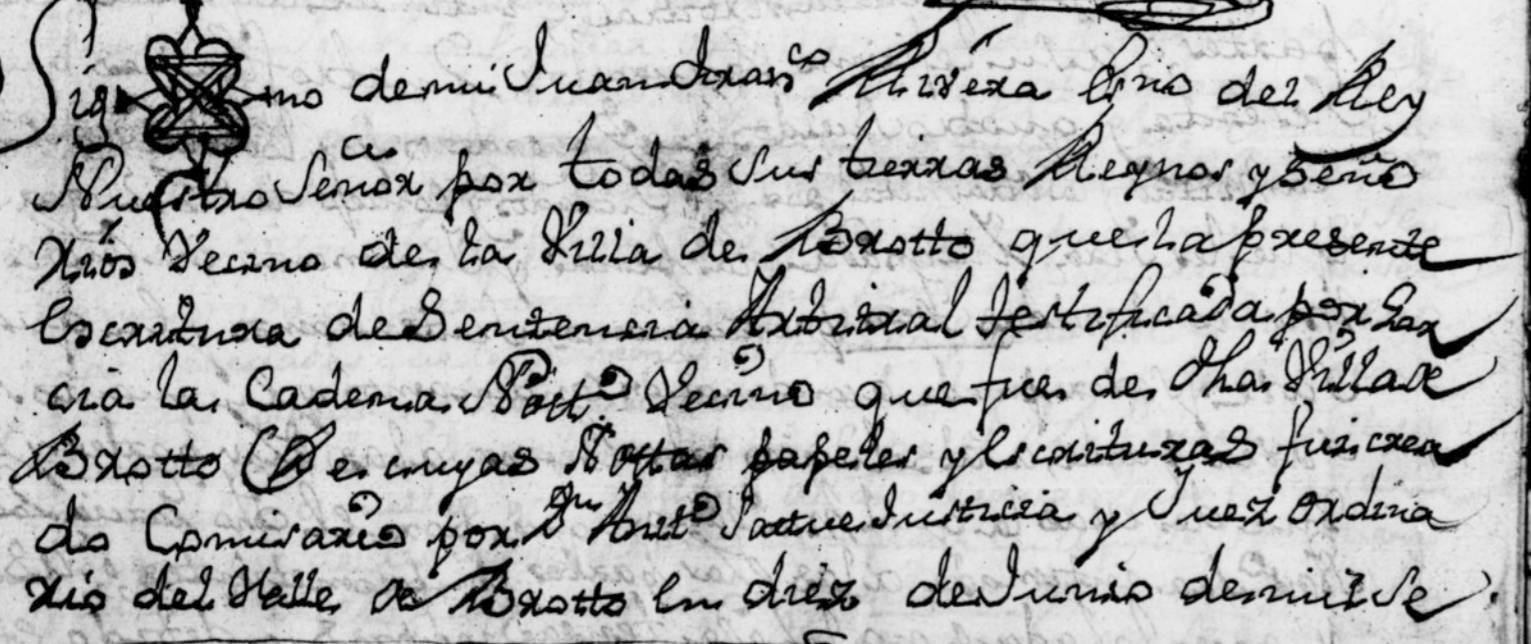 Sig no de mi Juan Franco Rivera Esno del Rey
Nuestro Señor por todas sus tierras Reynos y Seño
rios Vecino de la Villa de Brotto que la presente
Escritura de Sentencia Arbitral testificada por Gar
cia la Cadena Nott.o Vecino que fue de dha Villa de
Brotto (De cuyas Nottas papeles y Escrituras fui crea
do Comisario por Dn Antto Justicia y Juez ordina
rio del Valle de Brotto en diez de Junio de mil se